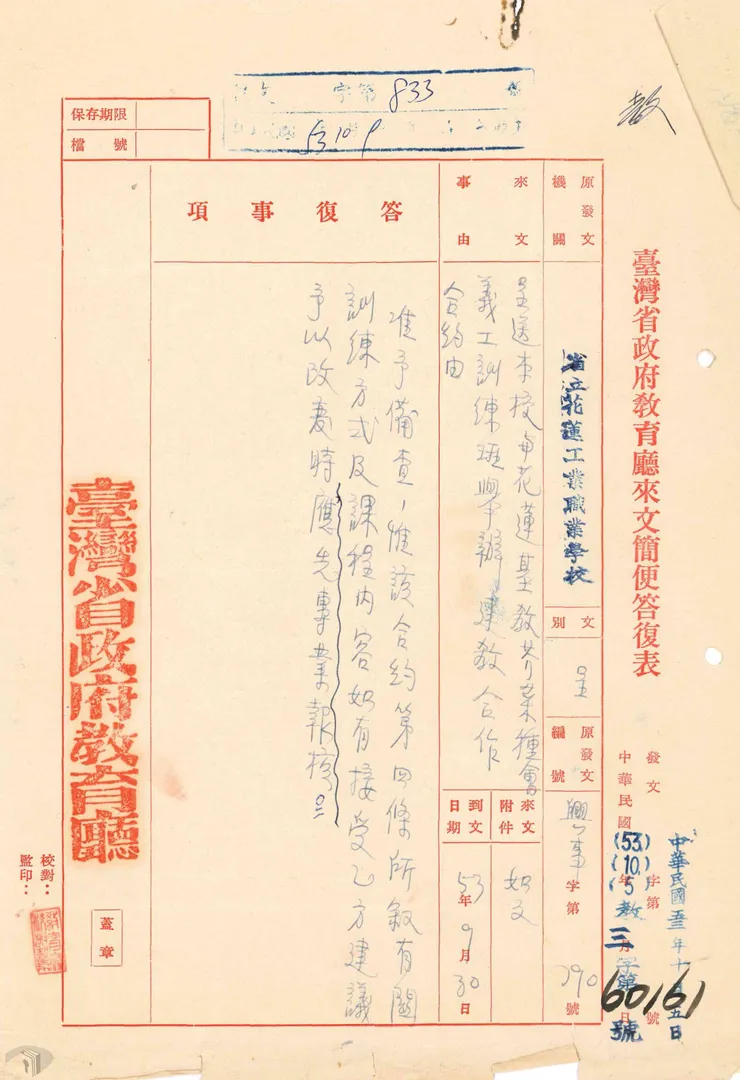 教
臺灣省政府教育廳來文簡便答復表
發文
中華民國
年
月
日
字第
號
中華民國五三年十月五日
(53.)
(10.)
(5
教三字第60161號
原發文機關
省立花蓮工業職業學校
文別
呈
原發文編號
興事字第790號
來文事由
呈送本校與花蓮基教芥菜種會
義工訓練班舉辦建教合作
合約由
來文附件
如文
到文日期
53年9月30日
答復事項
准予備查,惟該合約第四條所敘有關
訓練方式及課程內容如有接受乙方建議
予以改變時應先專案報核
保存期限
檔號
字第833號
53 10 9
臺灣省政府教育廳
蓋章
校對:
監印: